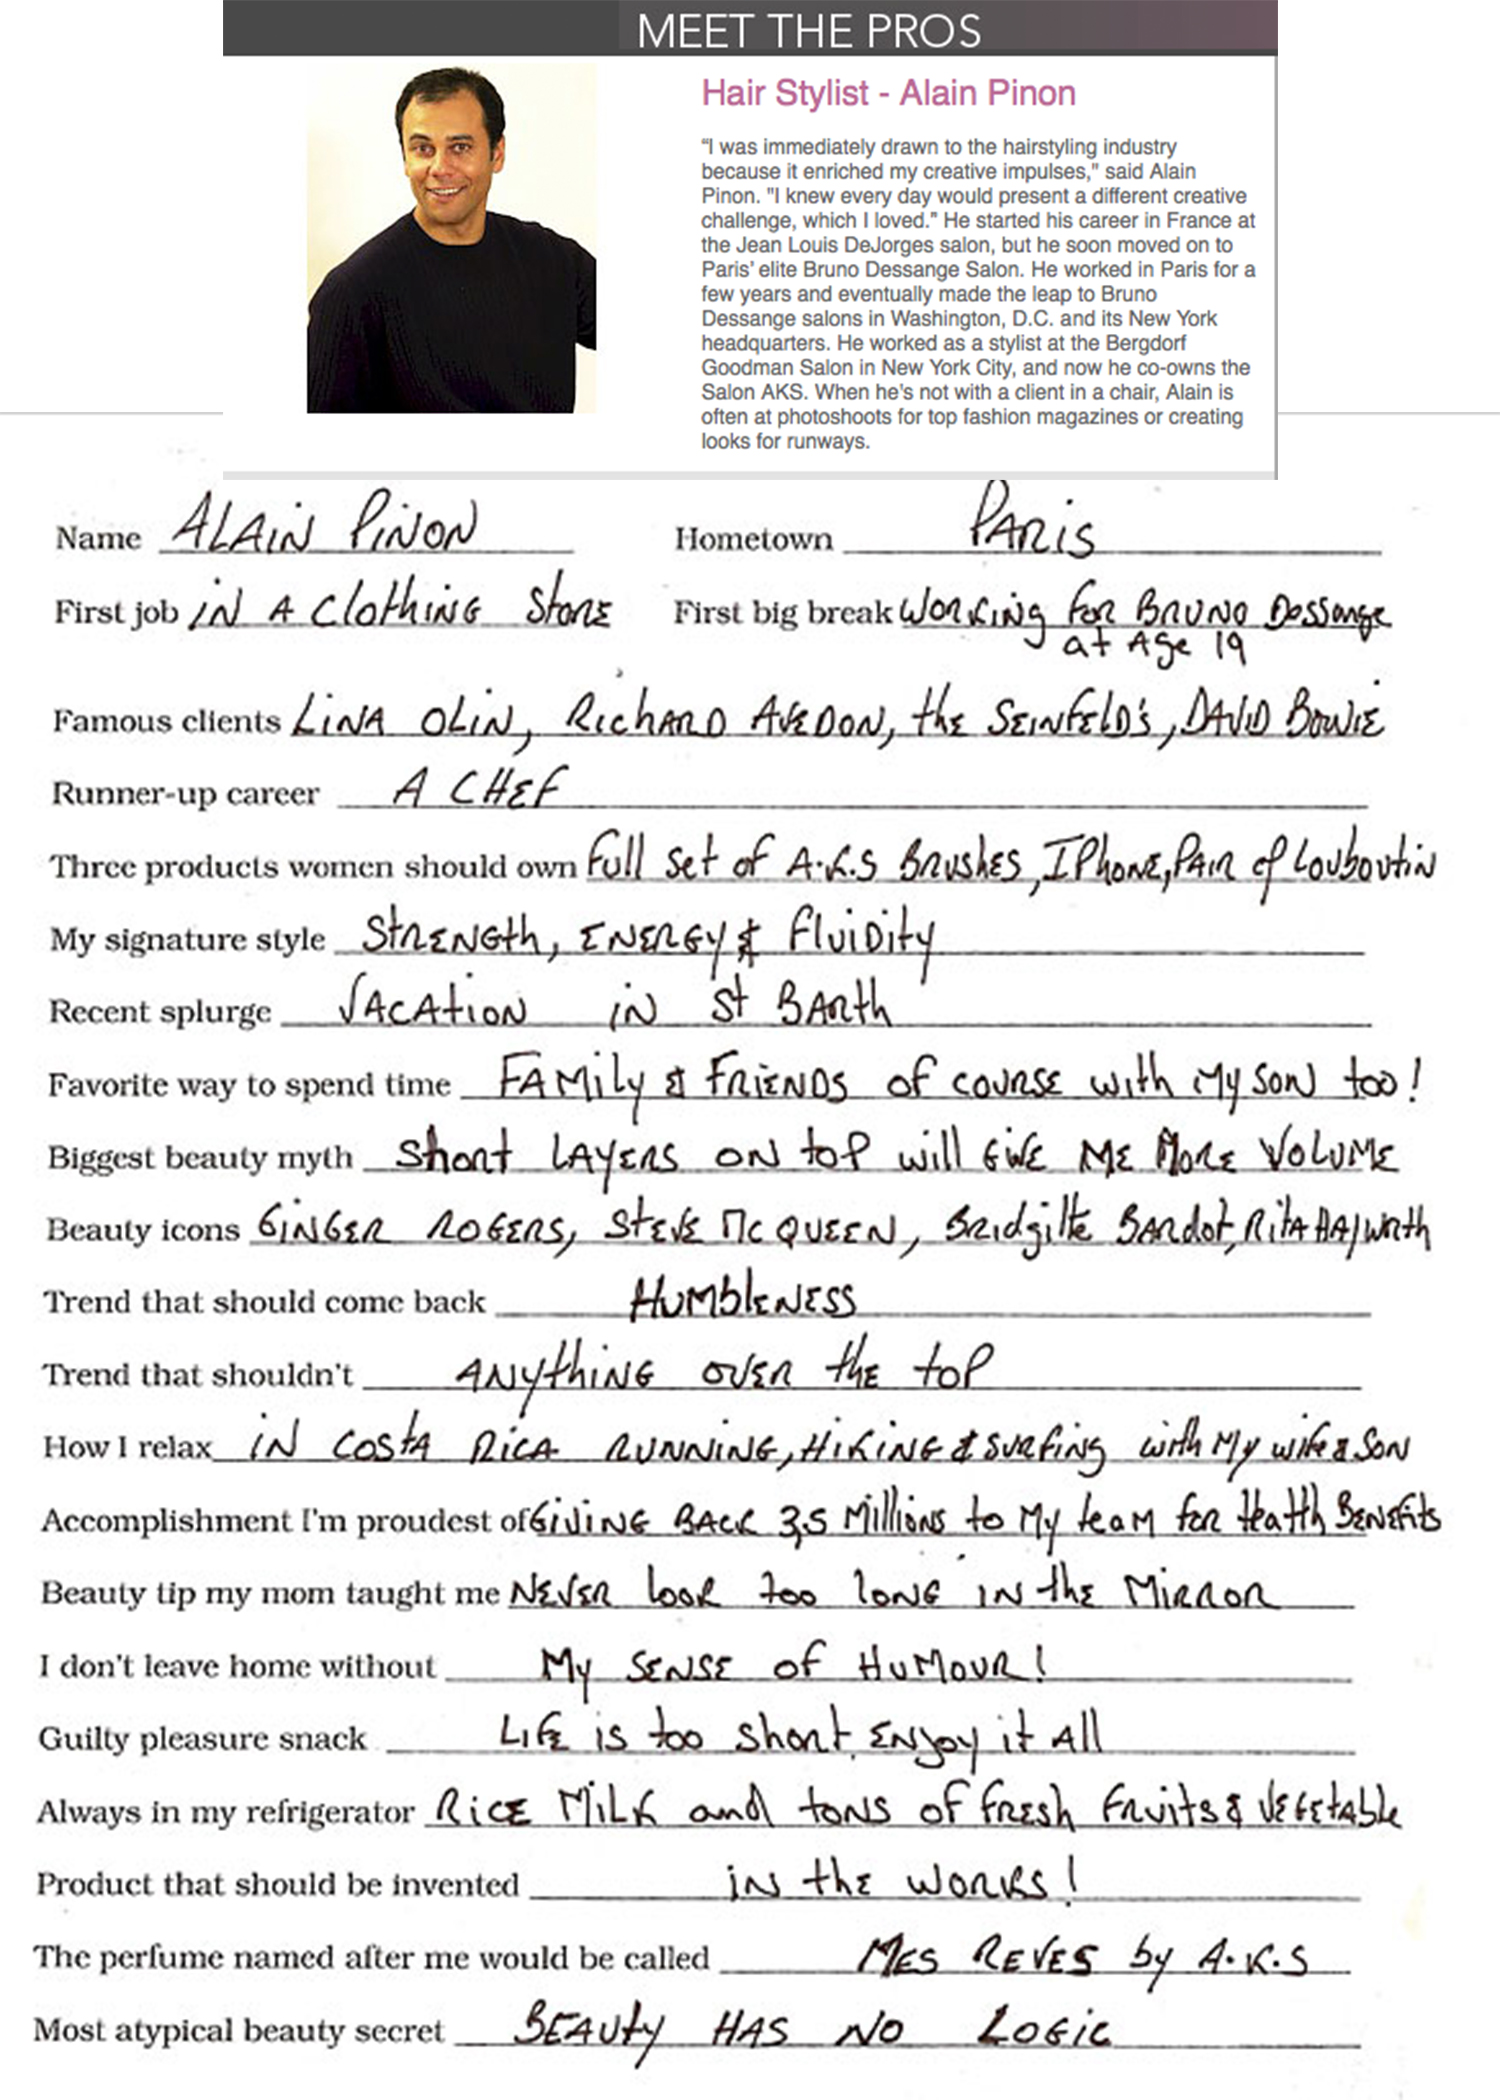 MEET THE PROS
Hair Stylist - Alain Pinon
“I was immediately drawn to the hairstyling industry
because it enriched my creative impulses," said Alain
Pinon. "I knew every day would present a different creative
challenge, which I loved." He started his career in France at
the Jean Louis DeJorges salon, but he soon moved on to
Paris' elite Bruno Dessange Salon. He worked in Paris for a
few years and eventually made the leap to Bruno
Dessange salons in Washington, D.C. and its New York
headquarters. He worked as a stylist at the Bergdorf
Goodman Salon in New York City, and now he co-owns the
Salon AKS. When he's not with a client in a chair, Alain is
often at photoshoots for top fashion magazines or creating
looks for runways.
Name ALAiN PiNON Hometown PARiS
First job iN A Clothing Store First big break Working for BRUNO Dessange
at Age 19
Famous clients LiNA OLiN, RichARD AVEDON, the SEiNfElD's, DAViD BowiE
Runner-up career A CHEF
Three products women should own Full set of A.K.S BRushes, IPhone, PAiR of Louboutin
My signature style StRENGth, ENERGy & fluiDity
Recent splurge VACAtiON iN St BARth
Favorite way to spend time FAMily & FRiENDS of couRSE with My SON too!
Biggest beauty myth Short LAYERS ON top will GiVE ME MORE VOLUME
Beauty icons GiNGER ROGERS, StEVE McQUEEN, Bridgitte BARdot, RitA HAywoRth
Trend that should come back HUMblENESS
Trend that shouldn't ANythiNG OVER the toP
How I relax iN COStA RiCA RUNNiNG, HiKiNG & SuRfing with My wife & Son
Accomplishment I'm proudest of GiViNG BACK 3,5 Millions to My team for Health BENEfits
Beauty tip my mom taught me NEVER look too loNG iN the MiRROR
I don't leave home without My SENSE of HUMOUR!
Guilty pleasure snack LifE is too short, ENjoy it All
Always in my refrigerator RiCE MiLK and tONS of fRESh fRuits & VEGEtAble
Product that should be invented iN the WORKS!
The perfume named after me would be called MES REVES by A.K.S
Most atypical beauty secret BEAUty HAS NO LOGiC